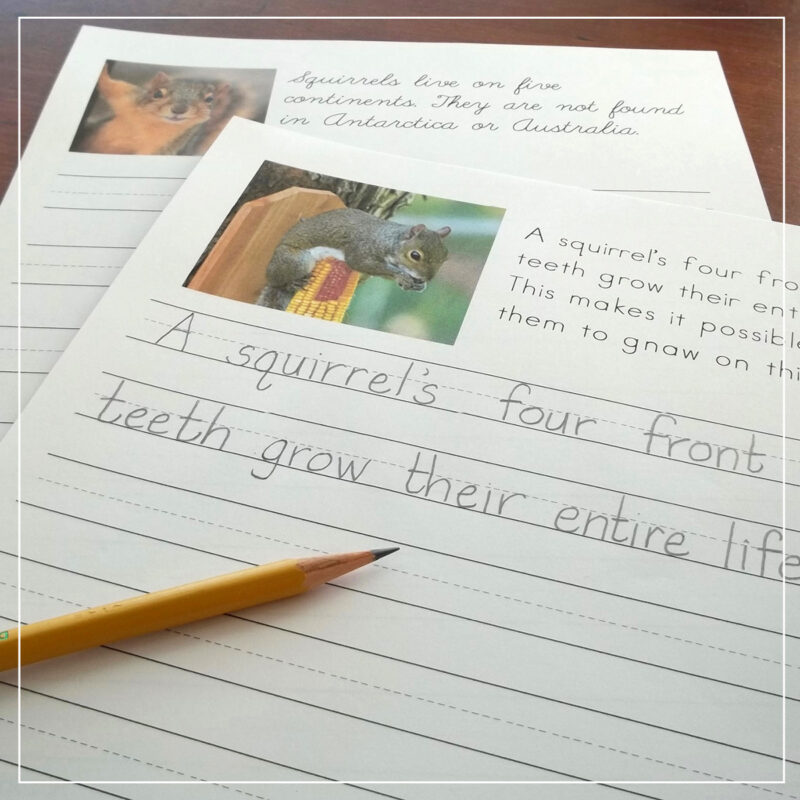 Squirrels live on five
continents. They are not found
in Antarctica or Australia.
A squirrel's four fro
teeth grow their ent
This makes it possible
them to gnaw on thi
A squirrel's four front
teeth grow their entire life